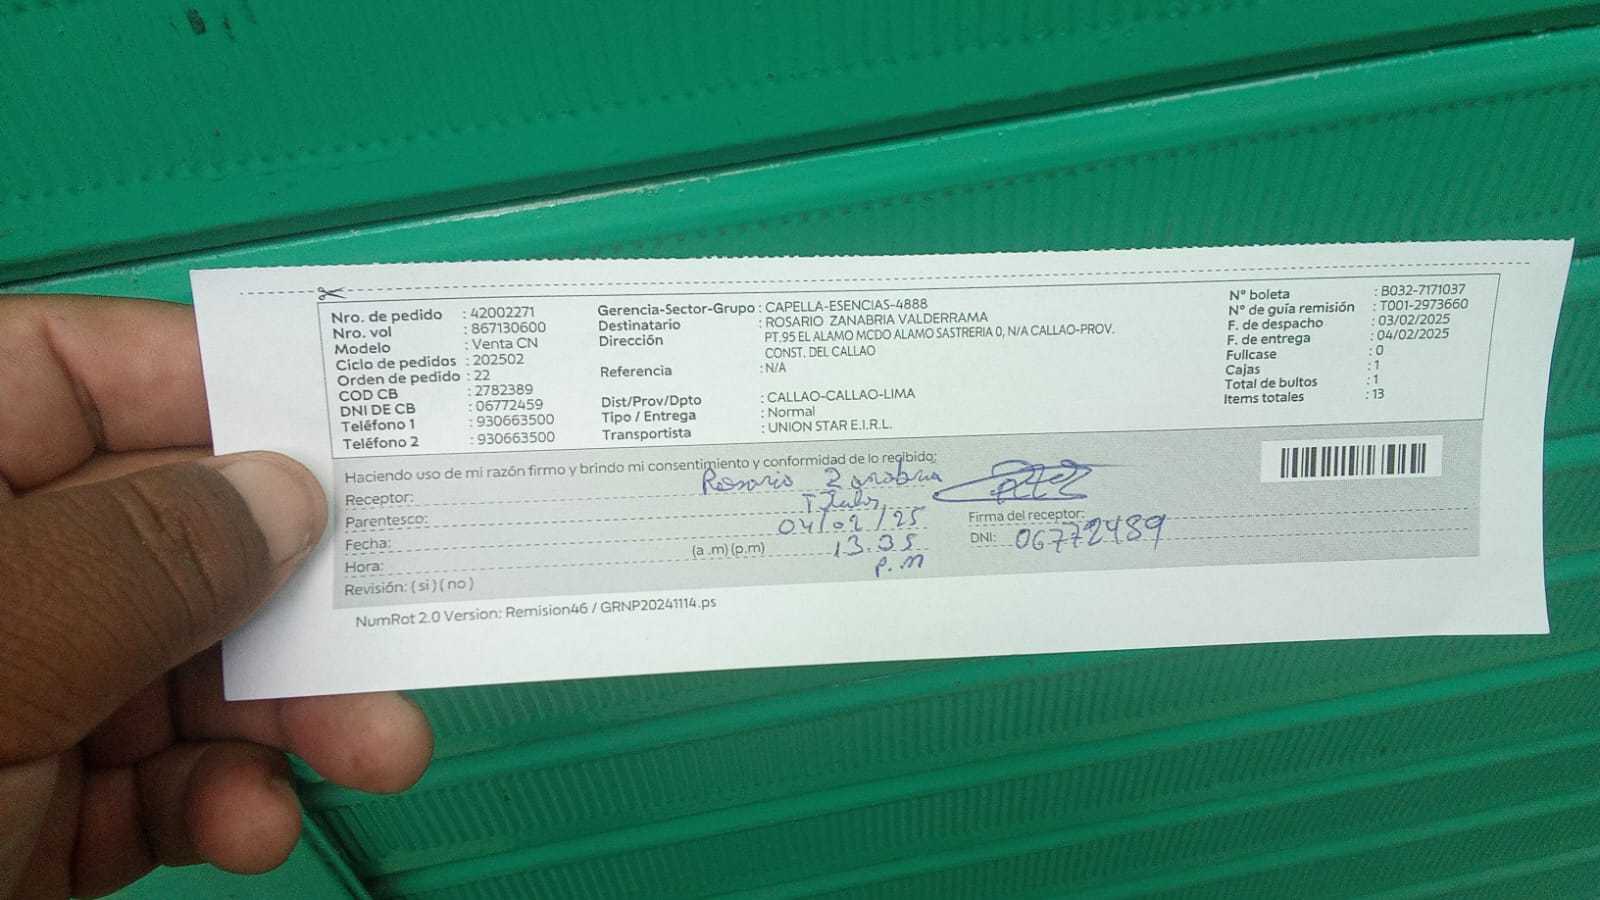 Nro. de pedido : 42002271
Nro. vol : 867130600
Modelo : Venta CN
Ciclo de pedidos : 202502
Orden de pedido : 22
COD CB : 2782389
DNI DE CB : 06772459
Teléfono 1 : 930663500
Teléfono 2 : 930663500
Gerencia-Sector-Grupo : CAPELLA-ESENCIAS-4888
Destinatario : ROSARIO ZANABRIA VALDERRAMA
Dirección PT.95 EL ALAMO MCDO ALAMO SASTRERIA 0, N/A CALLAO-PROV.
CONST. DEL CALLAO
Referencia : N/A
Dist/Prov/Dpto : CALLAO-CALLAO-LIMA
Tipo / Entrega : Normal
Transportista : UNION STAR E.I.R.L.
N° boleta : B032-7171037
N° de guía remisión : T001-2973660
F. de despacho : 03/02/2025
F. de entrega : 04/02/2025
Fullcase : 0
Cajas : 1
Total de bultos : 1
Items totales : 13
Haciendo uso de mi razón firmo y brindo mi consentimiento y conformidad de lo recibido:
Receptor: Rosario Zanabria
Parentesco: Titular
Fecha: 04/02/25
Hora: (a .m) (p.m) 13.35
p.m
Revisión: ( si ) ( no )
Firma del receptor:
DNI: 06772489
NumRot 2.0 Version: Remision46 / GRNP20241114.ps